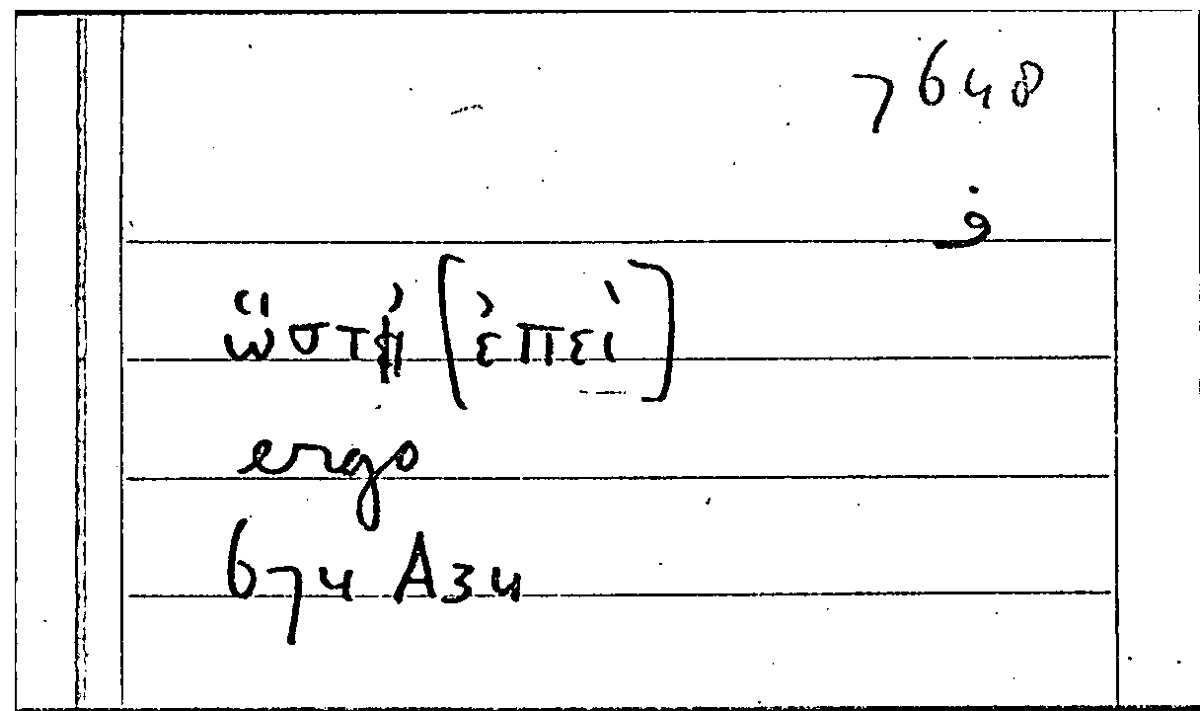 7648
ف
ὥστ’ [ἐπεὶ]
ergo
674 A34